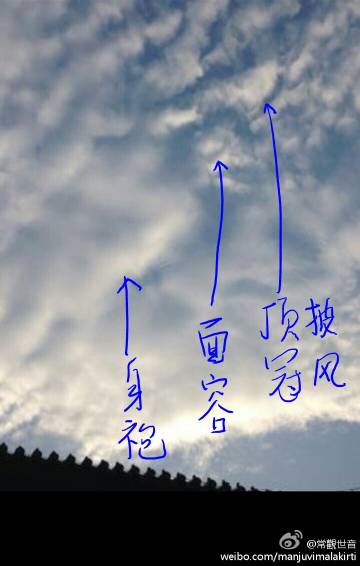 身袍
面容
顶冠
披风
@常觀世音
weibo.com/manjuvimalakirti